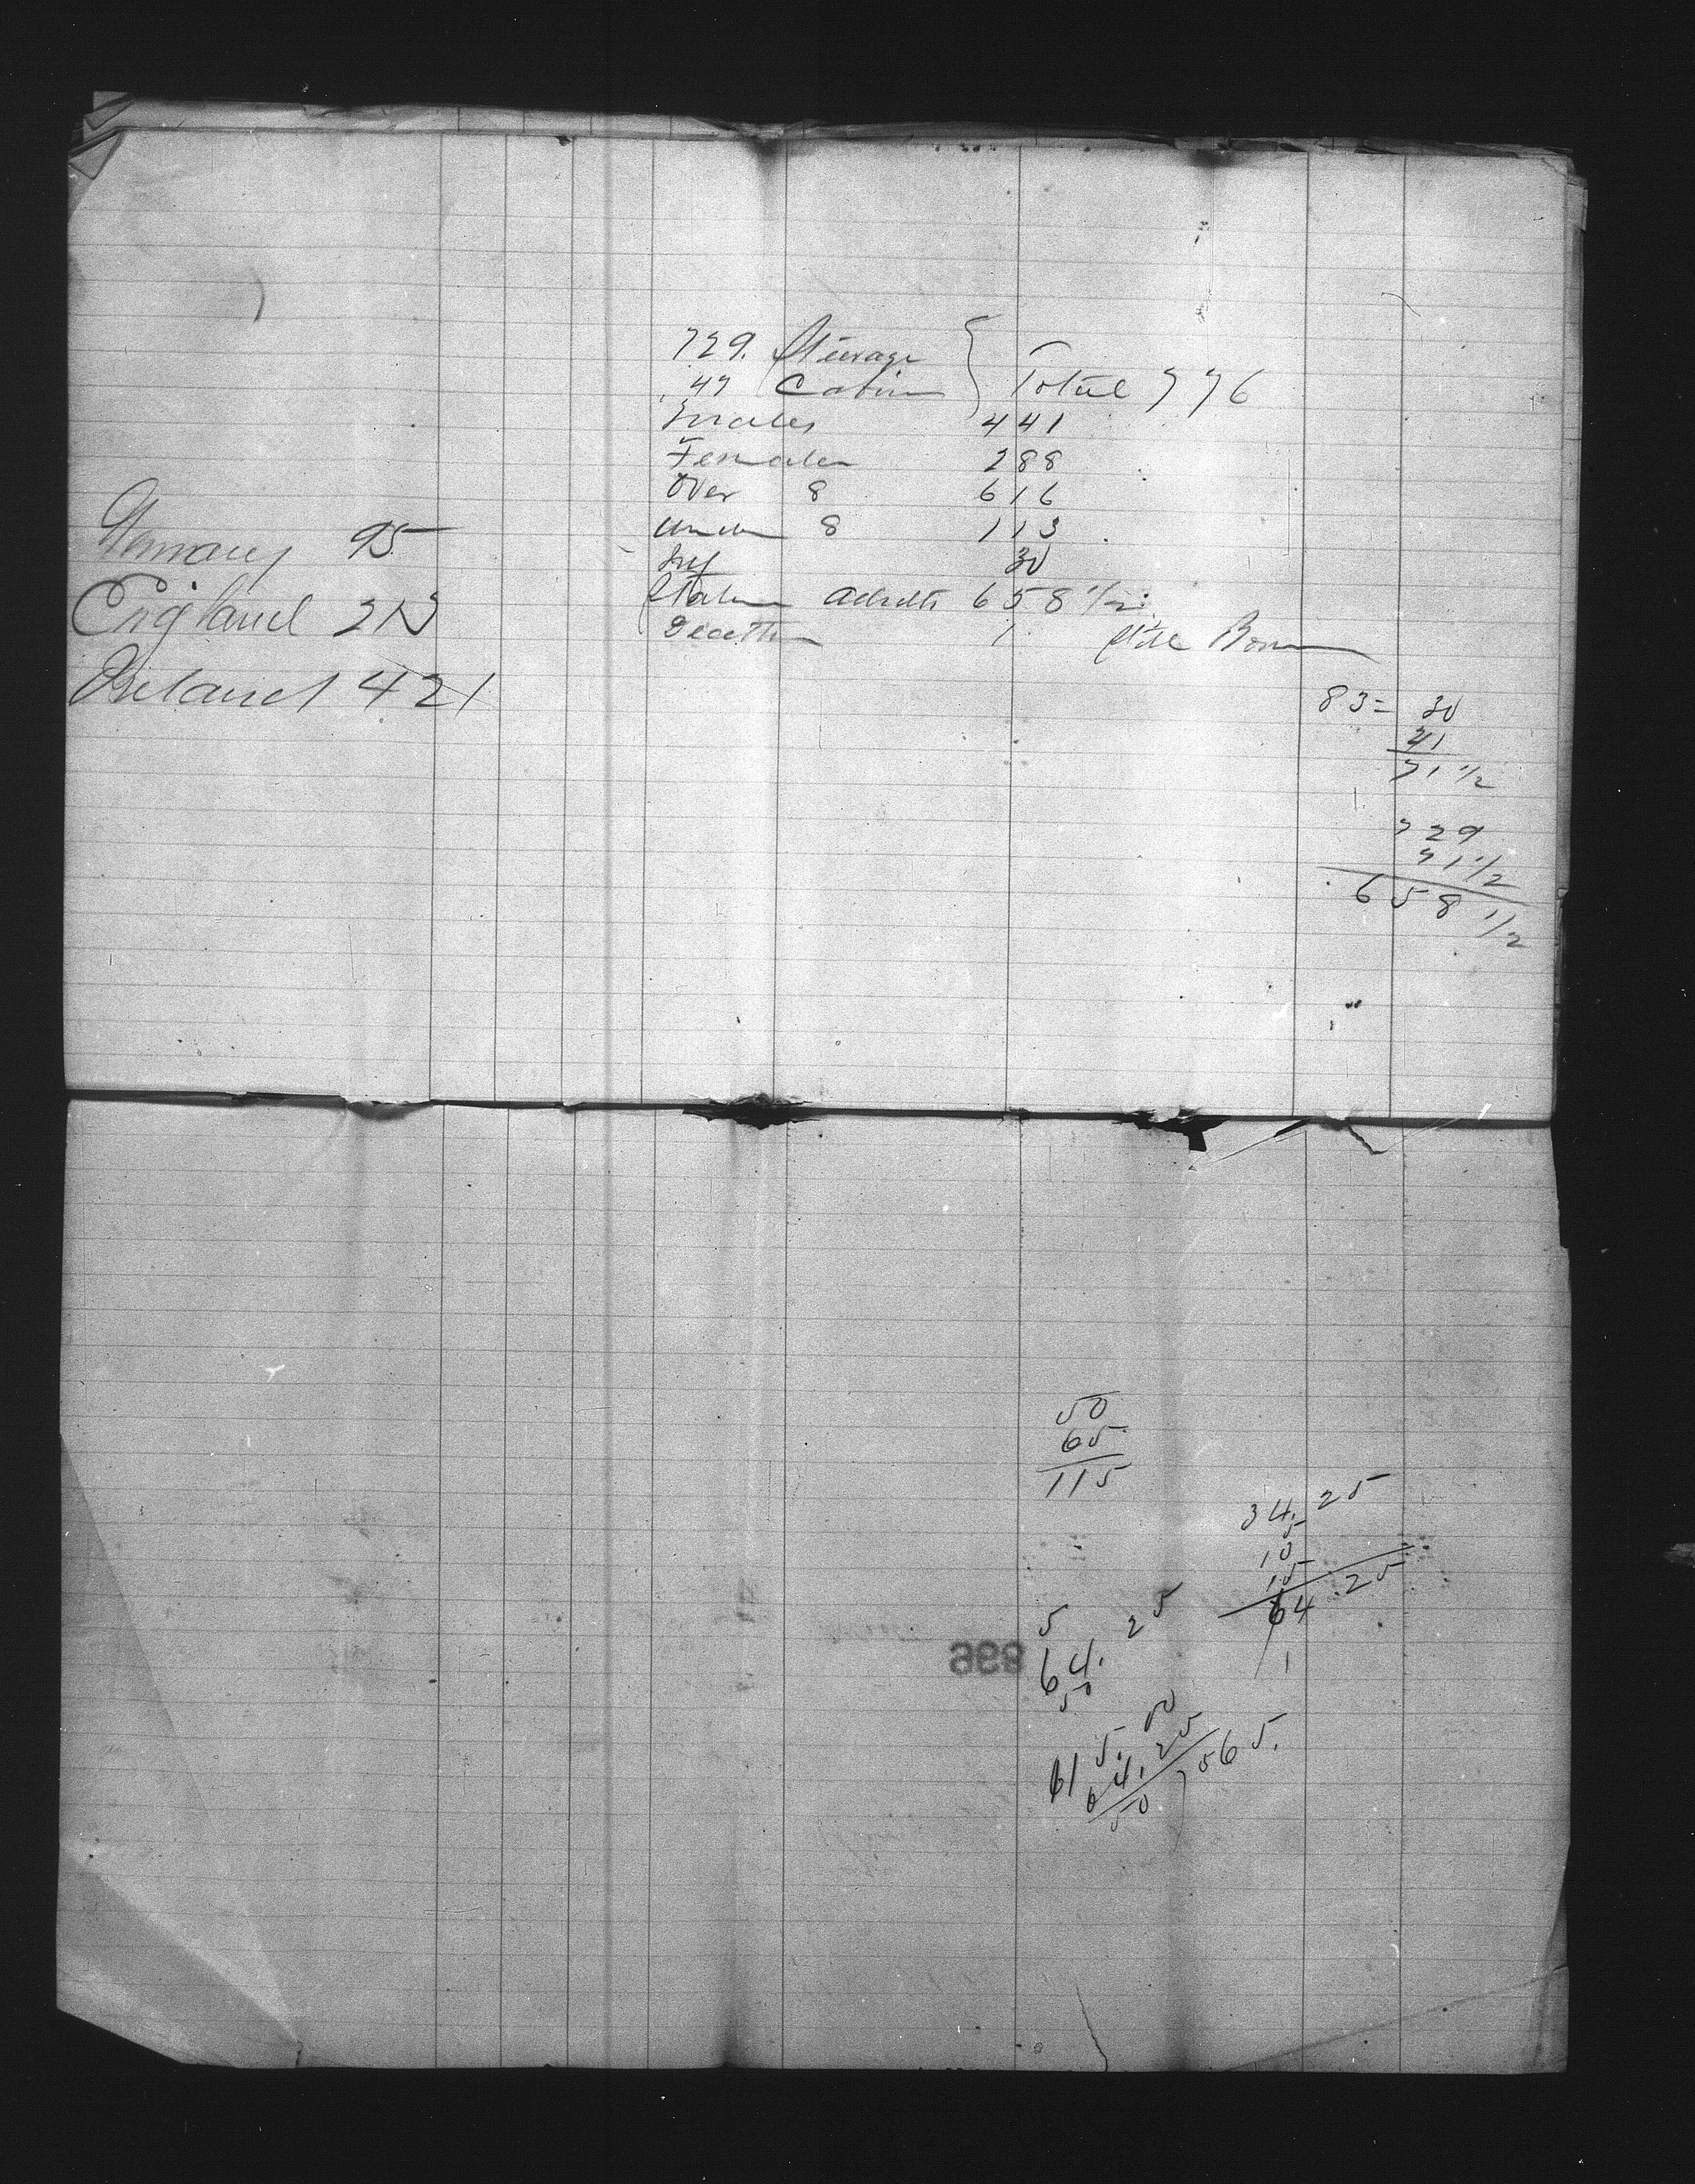 729. Steerage
47 Cabin } Total 776
Males 441
Females 288
Over 8 616
under 8 113
Inf 30
Statu Adults 658 1/2
Death 1. Still Born
Germany 95
England 213
Ireland 421
83 = 30
41
71 1/2
729
71 1/2
658 1/2
50
65
115
34.25
5
10
15
64.25
1
5
25
64.
50
615.00
64.25
50
565.
898